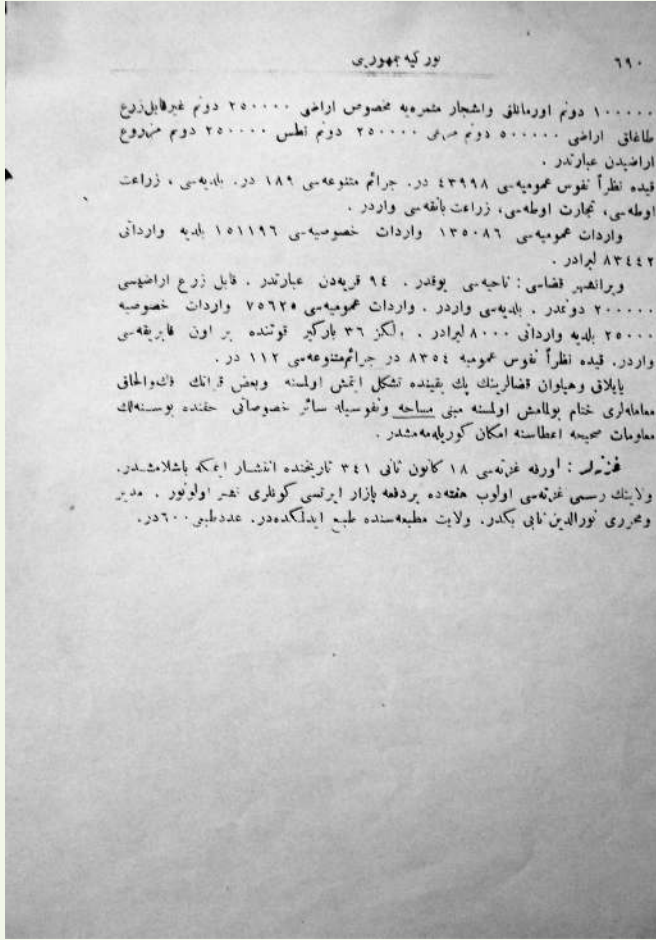 ٦٩٠ توركيه جمهوريتى
١٠٠٠٠٠ دونم اورمانلق واشجار مثمره‌يه مخصوص اراضى ٢٥٠٠٠٠ دونم غيرقابل‌زرع
طاغلق اراضى ٥٠٠٠٠٠ دونم مرعى ٢٥٠٠٠٠ دونم نطس ٢٥٠٠٠٠ دونم مزروع
اراضيدن عبارتدر .
قيده نظراً نفوس عموميه‌سى ٤٣٩٩٨ در. جرائم متنوعه‌سى ١٨٩ در. بلديه‌سى ، زراعت
اوطه‌سى، تجارت اوطه‌سى، زراعت بانقه‌سى واردر .
واردات عموميه‌سى ١٣٥٠٨٦ واردات خصوصيه‌سى ١٥١١٩٦ بلديه وارداتى
٨٣٤٤٢ ليرادر .
ويرانشهر قضاسى : ناحيه‌سى يوقدر . ٩٤ قريه‌دن عبارتدر . قابل زرع اراضيسى
٢٠٠٠٠٠ دونمدر . بلديه‌سى واردر . واردات عموميه‌سى ٧٥٦٢٥ واردات خصوصيه
٢٥٠٠٠ بلديه وارداتى ٨٠٠٠ ليرادر . يالكز ٣٦ باركير قوتنده بر اون فابريقه‌سى
واردر. قيده نظراً نفوس عموميه ٨٣٥٤ در جرائم‌متنوعه‌سى ١١٢ در .
يايلاق وهيلوان قضالرينك پك يقينده تشكل ايتمش اولمسنه وبعض قرانك فك‌والحاق
معامله‌لرى ختام بولمامش اولمسنه مبنى مساحه ونفوسيله سائر خصوصاتى حقنده بوسنه‌لك
معلومات صحيحه اعطاسنه امكان كوريله‌مه‌مشدر .
غزته‌لر : اورفه غزته‌سى ١٨ كانون ثانى ٣٤١ تاريخنده انتشار ايتمكه باشلامشدر.
ولايتك رسمى غزته‌سى اولوب هفته‌ده بردفعه بازار ايرتسى كونلرى نشر اولونور . مدير
ومحررى نورالدين نابى بكدر. ولايت مطبعه‌سنده طبع ايدلمكده‌در. عددطبعى ٦٠٠در.